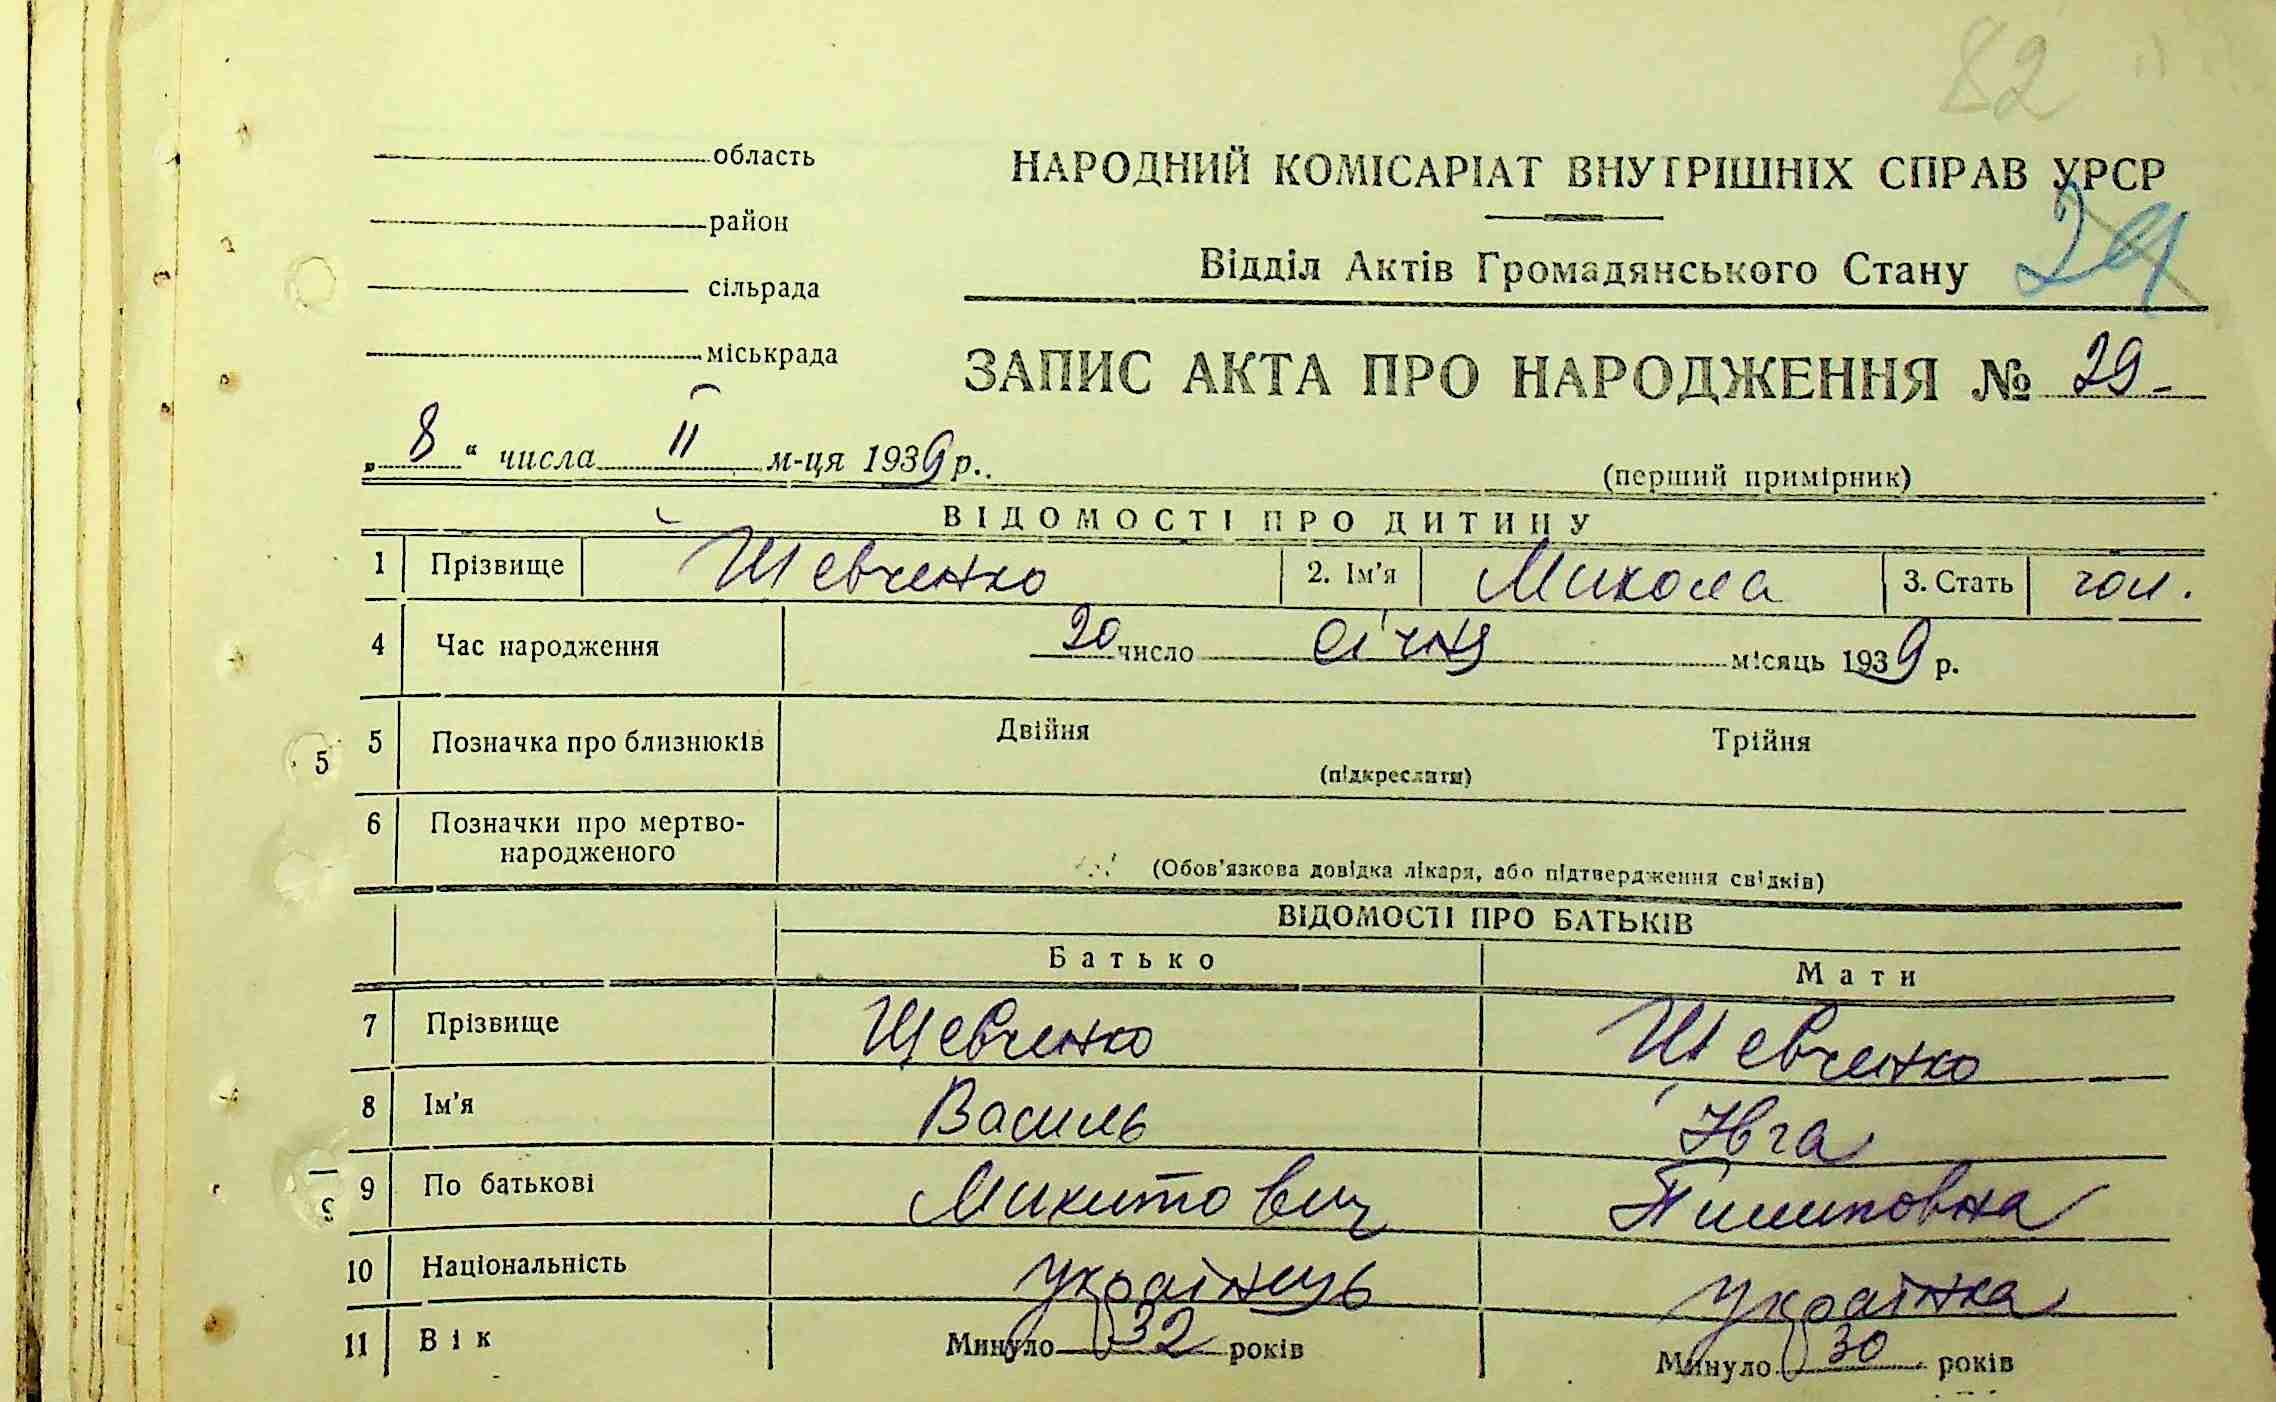 82
область
НАРОДНИЙ КОМІСАРІАТ ВНУТРІШНІХ СПРАВ УРСР
район
Відділ Актів Громадянського Стану 24
сільрада
міськрада
ЗАПИС АКТА ПРО НАРОДЖЕННЯ № 29-
„8“ числа II м-ця 1939 р.
(перший примірник)
ВІДОМОСТІ ПРО ДИТИНУ
1 Прізвище Шевченко 2. Ім'я Микола 3. Стать чол.
4 Час народження 20 число січня місяць 1939 р.
5 5 Позначка про близнюків Двійня Трійня
(підкреслити)
6 Позначки про мертво-
народженого
(Обов'язкова довідка лікаря, або підтвердження свідків)
ВІДОМОСТІ ПРО БАТЬКІВ
Батько Мати
7 Прізвище Шевченко Шевченко
8 Ім'я Василь Івга
9 По батькові Микитович Пилиповна
10 Національність українець українка
11 Вік Минуло 32 років Минуло 30 років